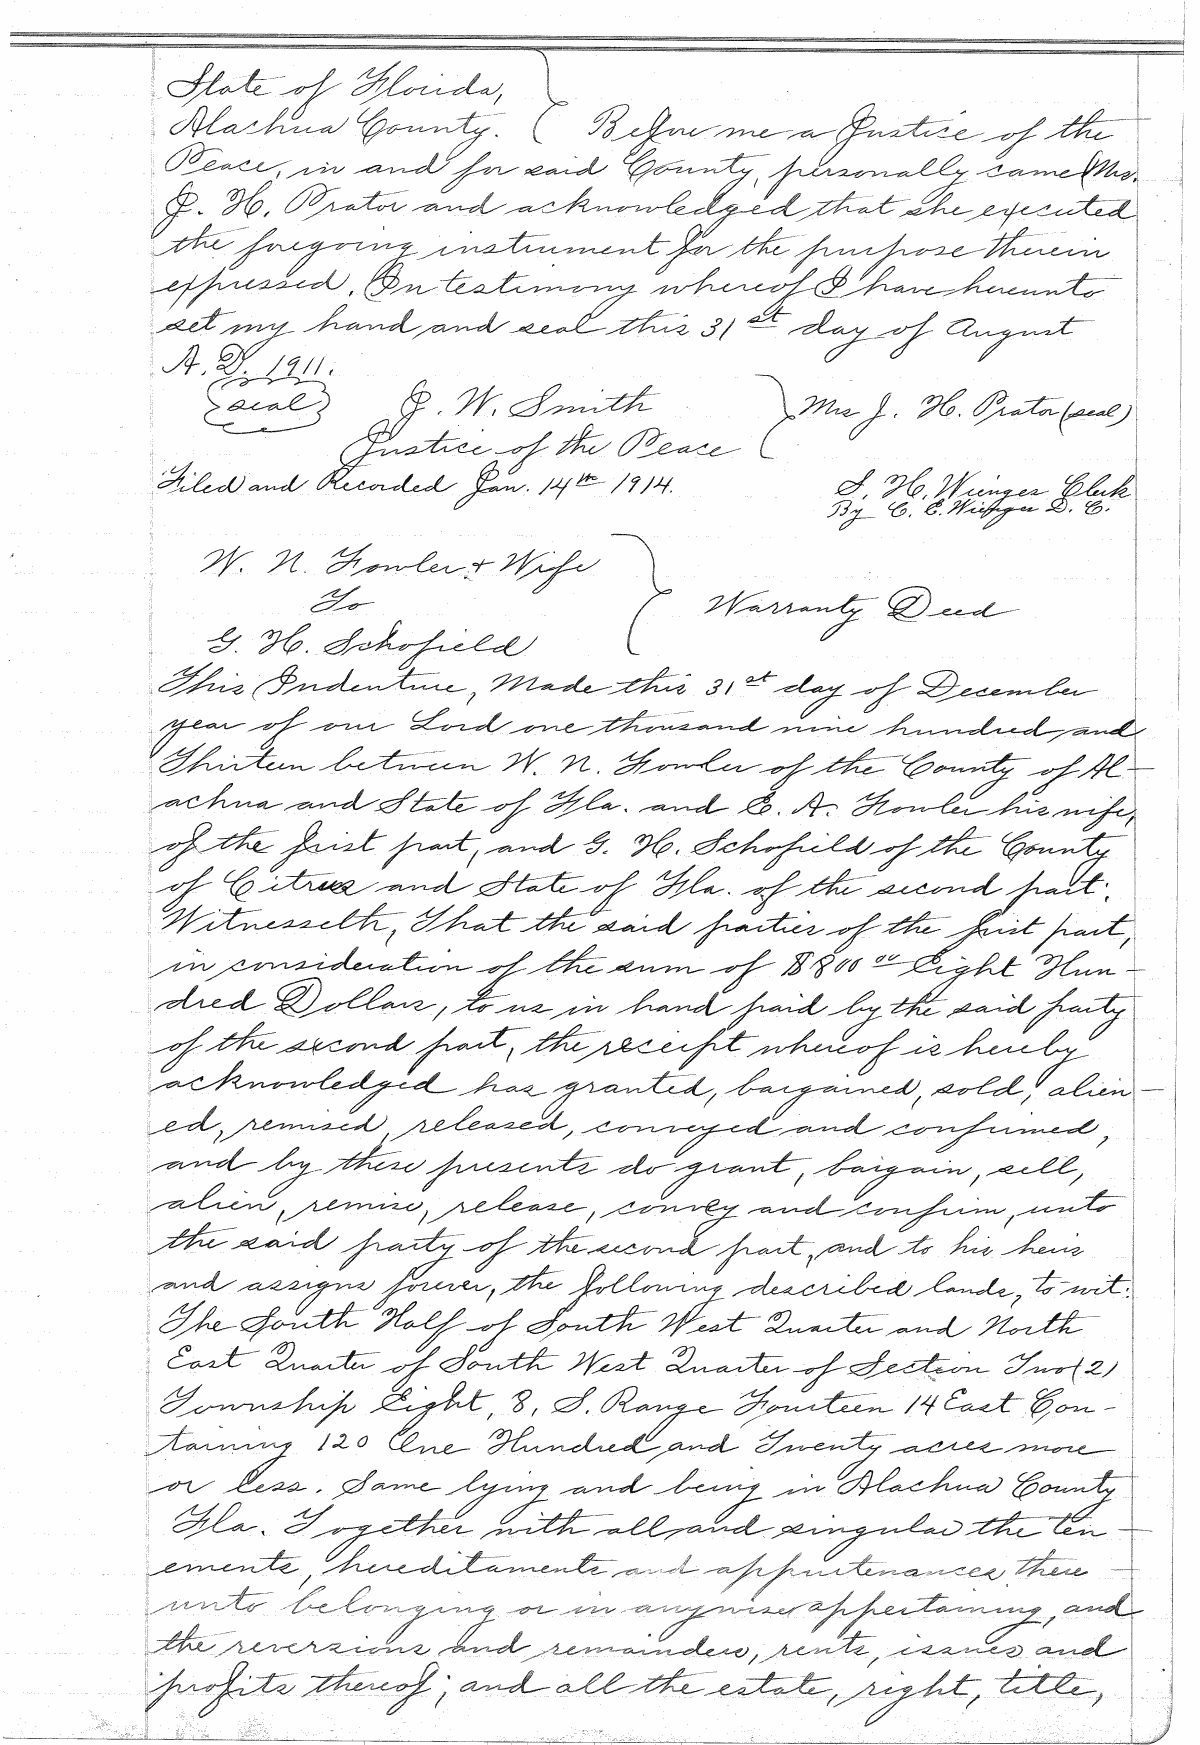 State of Florida,
Alachua County. ( Before me a Justice of the
Peace, in and for said County, personally came Mrs.
J. H. Prator and acknowledged that she executed
the foregoing instrument for the purpose therein
expressed. In testimony whereof I have hereunto
set my hand and seal this 31st day of August
A. D. 1911.
(seal) J. W. Smith Mrs J. H. Prator (seal)
Justice of the Peace
Filed and Recorded Jan. 14th 1914.
S. H. Wienges Clerk
By C. E. Wienges D. C.
W. N. Fowler + Wife
To
Warranty Deed
G. H. Schofield
This Indenture, Made this 31st day of December
year of our Lord one thousand nine hundred and
Thirteen between W. N. Fowler of the County of Al-
achua and State of Fla. and E. A. Fowler his wife,
of the first part, and G. H. Schofield of the County
of Citrus and State of Fla. of the second part.
Witnesseth, That the said parties of the first part,
in consideration of the sum of $800 00 Eight Hun-
dred Dollars, to us in hand paid by the said party
of the second part, the receipt whereof is hereby
acknowledged has granted, bargained, sold, alien-
ed, remised, released, conveyed and confirmed,
and by these presents do grant, bargain, sell,
alien, remise, release, convey and confirm, unto
the said party of the second part, and to his heirs
and assigns forever, the following described lands, to wit:
The South Half of South West Quarter and North
East Quarter of South West Quarter of Section Two (2)
Township Eight, 8, S. Range Fourteen 14 East Con-
taining 120 One Hundred and Twenty acres more
or less. Same lying and being in Alachua County
Fla. Together with all and singular the ten-
ements, hereditaments and appurtenances there-
unto belonging or in anywise appertaining, and
the reversions and remainders, rents, issues and
profits thereof; and all the estate, right, title,